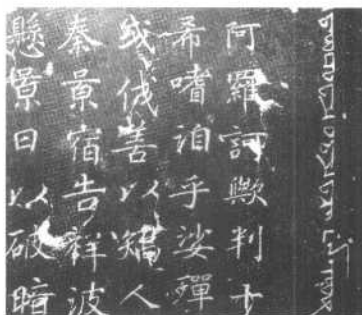 阿羅訶歟判十
希嗜洎乎娑殫
或伐善以矯人
秦景宿告祥波
懸景日以破暗